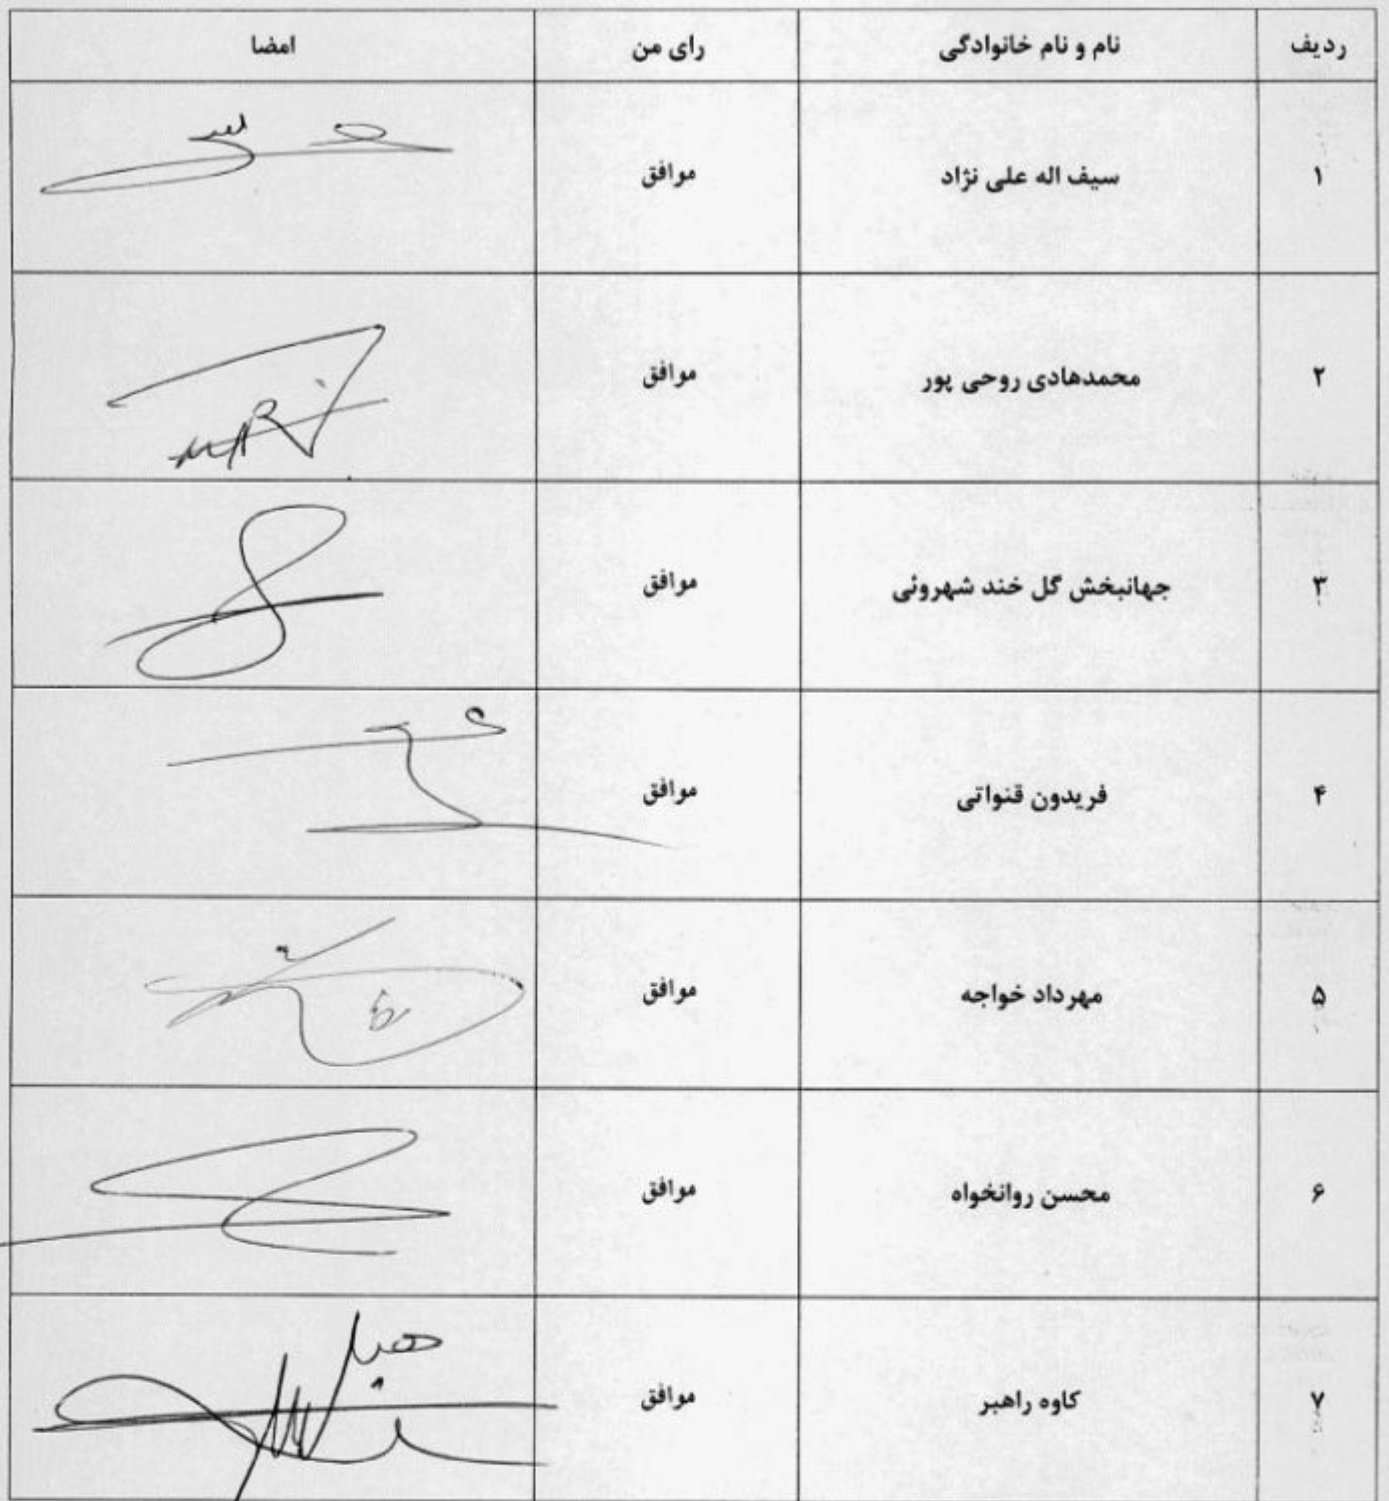 ردیف نام و نام خانوادگی رای من امضا
۱ سیف اله علی نژاد موافق
۲ محمدهادی روحی پور موافق
۳ جهانبخش گل خند شهروئی موافق
۴ فریدون قنواتی موافق
۵ مهرداد خواجه موافق
۶ محسن روانخواه موافق
۷ کاوه راهبر موافق